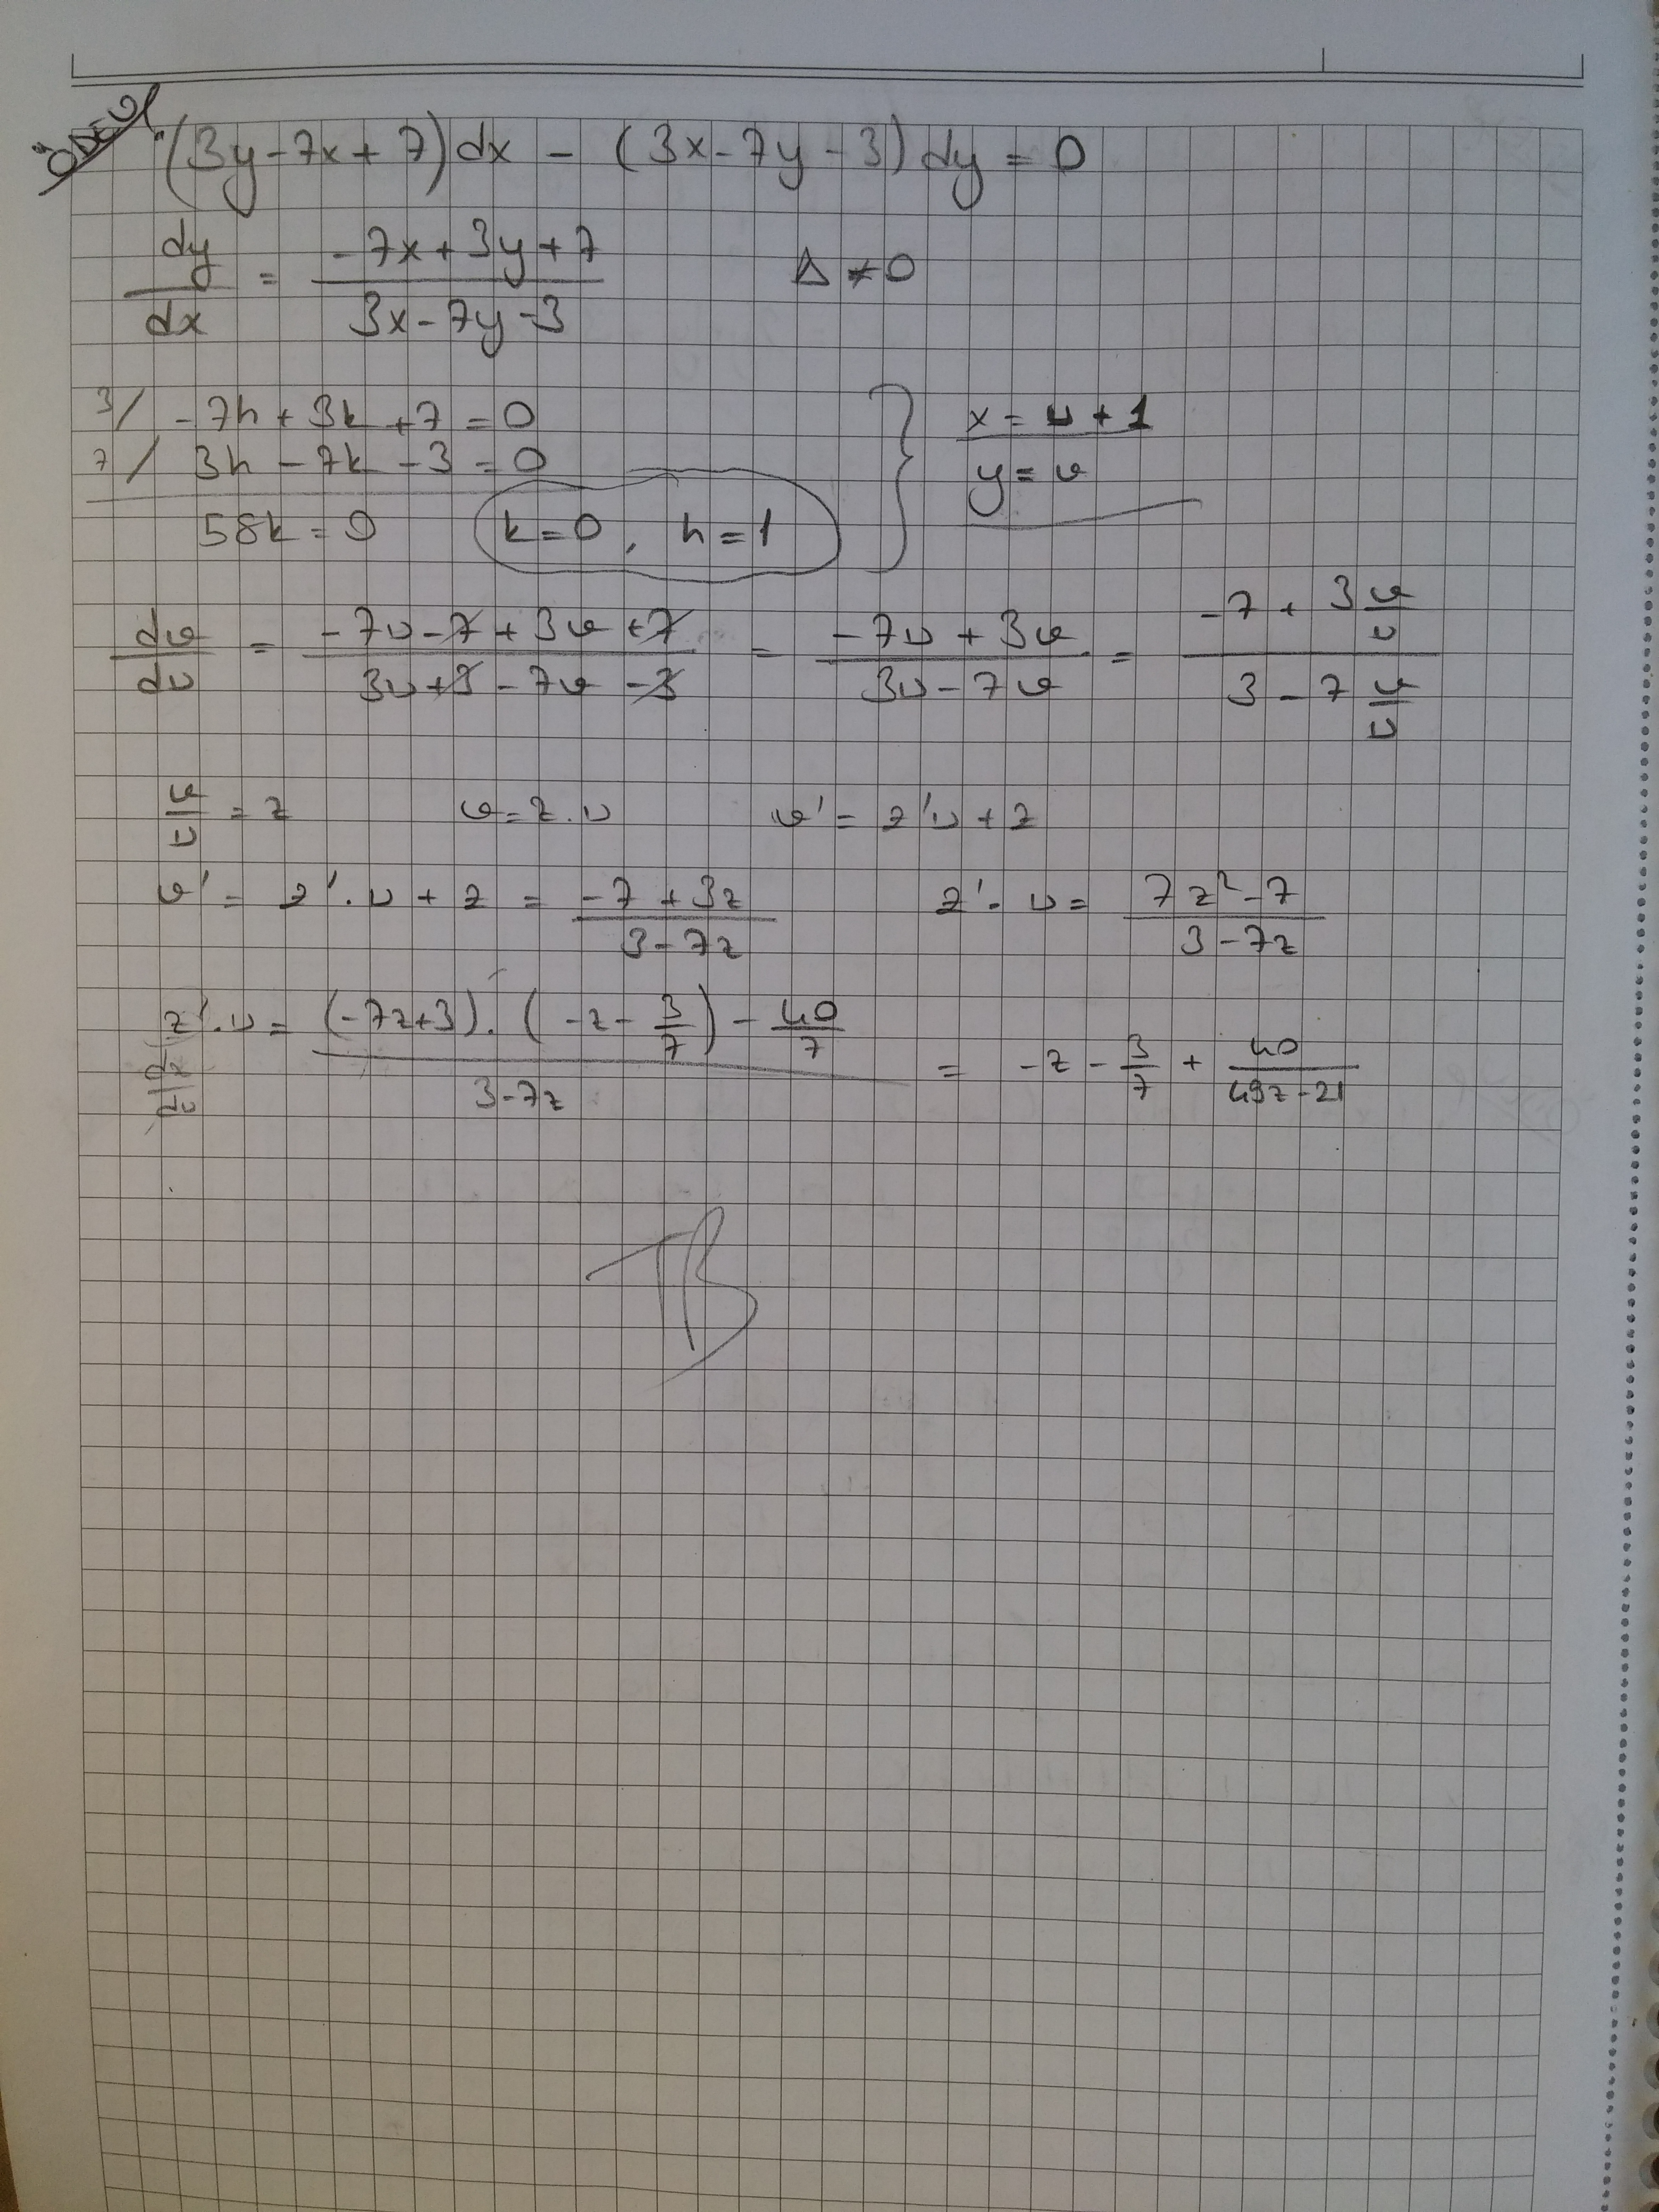 ÖDEV
(3y-7x+7)dx - (3x-7y-3)dy = 0
dy/dx = (-7x+3y+7)/(3x-7y-3) Δ ≠ 0
3/ -7h + 3k + 7 = 0
7/ 3h - 7k - 3 = 0
58k = 0 k=0, h=1
x = u + 1
y = v
dv/du = (-7u-7+3v+7)/(3u+3-7v-3) = (-7u+3v)/(3u-7v) = (-7+3v/u)/(3-7v/u)
v/u = z v = z.u v' = z'u + z
v' = z'.u + z = (-7+3z)/(3-7z) z'.u = (7z²-7)/(3-7z)
z'.u = ((-7z+3).(-z-3/7) - 40/7)/(3-7z) = -z - 3/7 + 40/(49z-21)
dz/du
TB